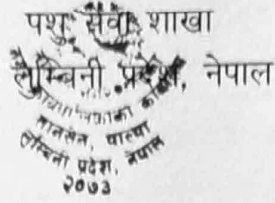 पशु सेवा शाखा
लुम्बिनी प्रदेश, नेपाल
तानसेन, पाल्पा
लुम्बिनी प्रदेश, नेपाल
२०७३